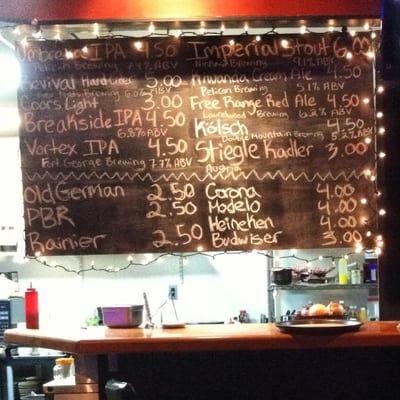 Umbrella IPA 4.50
Pelican Brewing 7.4% ABV
Revival Hard Cider 5.00
6.0% ABV
Coors Light 3.00
Breakside IPA 4.50
6.8% ABV
Vortex IPA 4.50
Fort George Brewing 7.7% ABV
Imperial Stout 6.00
Ninkasi Brewing 9.1% ABV
Kiwanda Cream Ale 4.50
Pelican Brewing 5.1% ABV
Free Range Red Ale 4.50
Laurelwood Brewing 6.2% ABV
Kölsch 4.50
Double Mountain Brewing 5.2% ABV
Stiegle Radler 3.00
Austria
Old German 2.50
PBR 2.50
Rainier 2.50
Corona 4.00
Modelo 4.00
Heineken 4.00
Budwiser 3.00